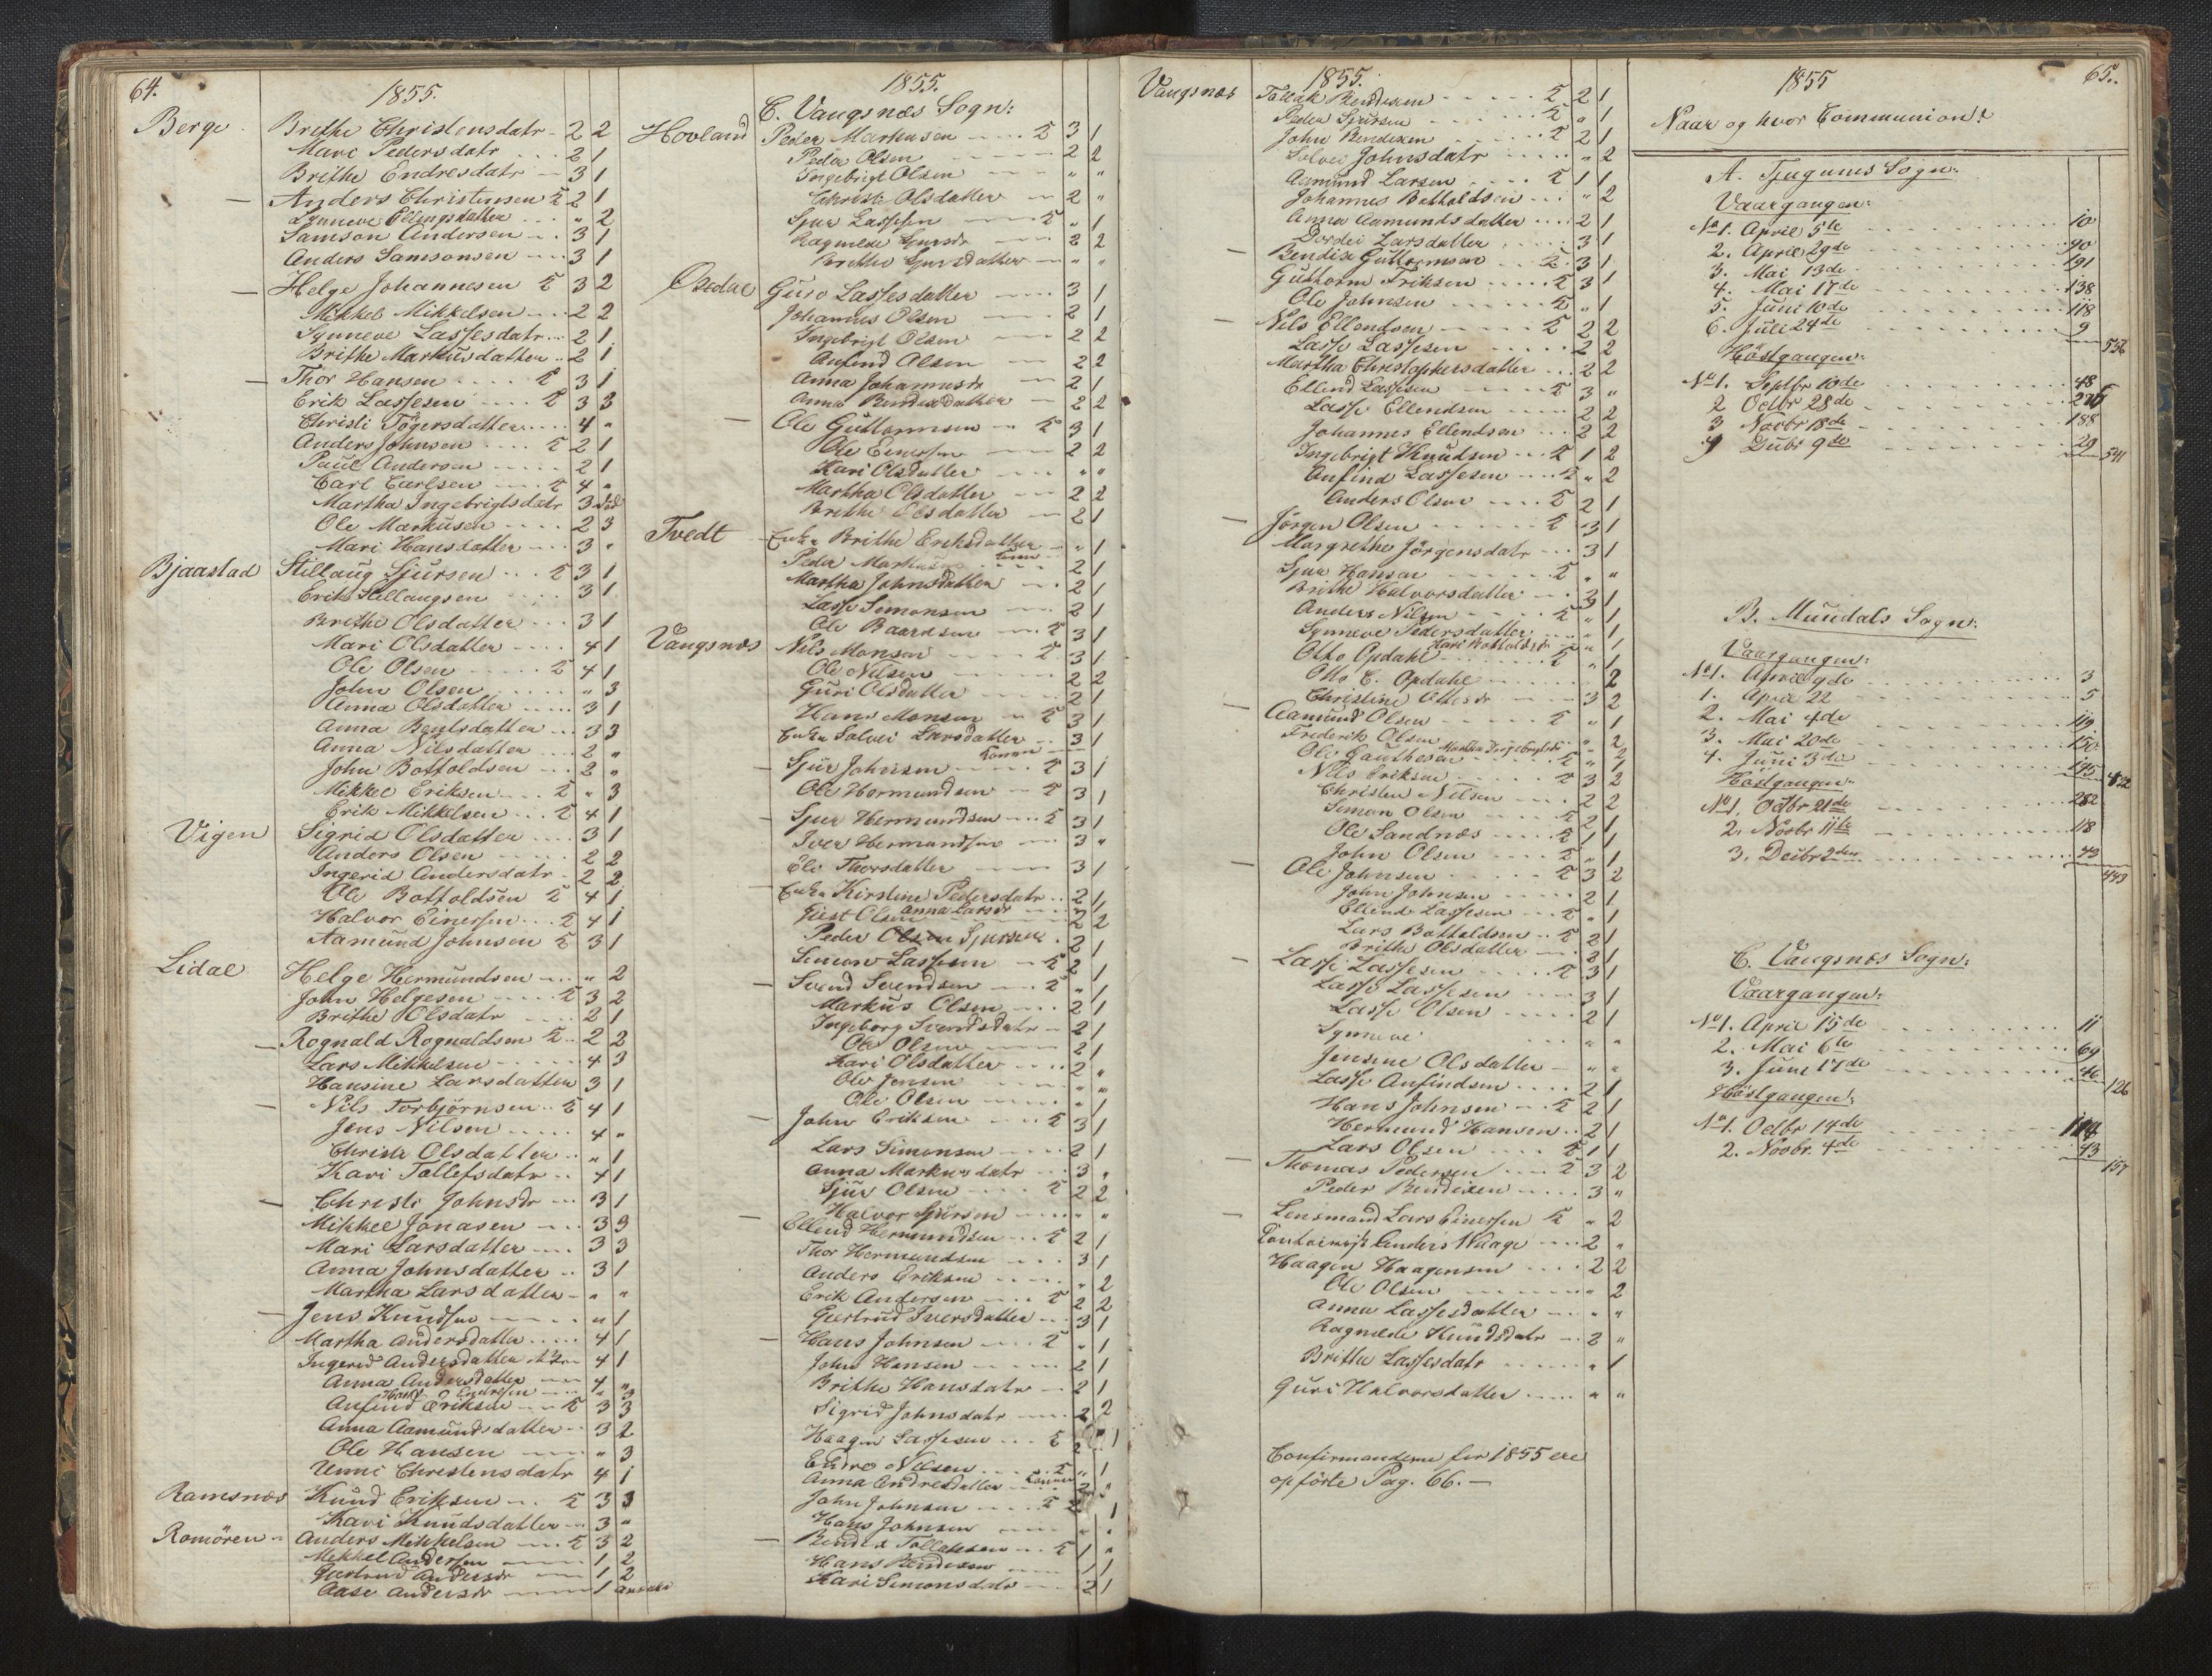 64.
1855.
Berge Brithe Christensdatr 2 2
Mari Pedersdatr 2 1
Brithe Endresdatr 3 1
Anders Christensen 2 1
Synneve Ellingsdatter " 2
Samson Andersen 3 1
Anders Samsonsen 3 1
Helge Johannesen 3 2
Mikkel Mikkelsen 2 2
Synneve Lassesdatr 2 1
Brithe Markusdatter 2 1
Thor Hansen 3 1
Erik Lassesen 3 3
Christi Tøgersdatter 4 "
Anders Johnsen 2 1
Paul Andersen 2 1
Carl Carlsen 4 "
Martha Ingebrigtsdatr 3 død
Ole Markusen 2 3
Mari Hansdatter 3 "
Bjaastad Stillaug Sjursen 3 1
Erik Stillaugsen 3 1
Brithe Olsdatter 3 1
Mari Olsdatter 4 1
Ole Olsen 4 1
John Olsen " 3
Anna Olsdatter 3 1
Anna Bentsdatter 3 3
Anna Nilsdatter 2 "
John Botfoldsen 2 "
Mikkel Eriksen " 3
Erik Mikkelsen 4 1
Vigen Sigrid Olsdatter 3 1
Anders Olsen 2 2
Ingerid Andersdatr 2 2
Ole Botfoldsen 4 1
Halvor Einersen 4 1
Aamund Johnsen 3 1
Lidal Helge Hermundsen " 2
John Helgesen 3 2
Brithe Olsdatr 2 1
Rognald Rognaldsen 2 2
Lars Mikkelsen 4 3
Hansine Larsdatter 3 1
Nils Torbjørnsen 4 1
Jens Nilsen 4 "
Christi Olsdatter " 1
Kari Tollefsdatr 4 1
Christi Johnsdr 3 1
Mikkel Jonasen 3 3
Mari Larsdatter 3 3
Anna Johnsdatter 3 1
Martha Larsdatter " "
Jens Knudsen " 1
Martha Andersdatter 4 1
Ingerid Andersdatter 4 1
Anna Andersdatter 4 "
Anfind Eriksen 3 3
Anna Aamundsdatter 3 2
Ole Hansen " 3
Unni Christensdatr 4 1
Ramsnæs Knud Eriksen 3 3
Kari Knudsdatter 3 "
Romören Anders Mikkelsen 3 2
Mikkel Andersen 1 2
Gjertrud Andersdr 1 2
Aase Andersdr 1
1855.
C. Vangsnæs Sogn:
Hovland Peder Markusen 3 1
Peder Olsen 2 2
Ingebrigt Olsen " "
Christi Olsdatter 2 "
Sjur Lassesen " 1
Ragnilde Sjursdr 2 2
Brithe Sjursdatter " "
Guro Lassesdatter 3 1
Johannes Olsen 2 1
Ingebrigt Olsen 2 2
Anfind Olsen 2 2
Anna Johannesdr 2 1
Anna Bendixdatter 2 2
Ole Guttormsen 3 1
Ole Einersen 2 2
Kari Olsdatter " "
Martha Olsdatter 2 2
Brithe Olsdatter 2 1
Tvedt Enke Brithe Eriksdatter " 1
Peder Markusen 2 1
Martha Johnsdatter 2 1
Lasse Simonsen 2 1
Ole Baardsen 3 1
Vangsnæs Nils Monsen 3 1
Ole Nilsen 2 2
Guri Olsdatter 2 1
Hans Monsen 3 1
Enke Solvei Larsdatter 3 1
Sjur Johnsen 3 1
Ole Hermundsen 3 1
Sjur Hermundsen 3 1
Iver Hermundsen 3 "
Eli Thorsdatter 3 1
Enke Kirstine Pedersdatr 2 1
Anna Larsdr
Peder Olsen Sjursen 2 1
Simon Lassesen 2 1
Svend Svendsen " 1
Markus Olsen 2 1
Ingeborg Svendsdatr 2 1
Ole Olsen 2 1
Kari Olsdatter 2 "
Ole Jensen " "
Ole Olsen " 1
John Eriksen 3 1
Lars Simonsen 2 1
Anna Markusdatr 3 "
Sjur Olsen 2 2
Halvor Sjursen " "
Ellend Hermundsen 2 1
Thor Hermundsen 3 1
Anders Eriksen " 2
Erik Andersen 2 2
Gjertrud Iversdatter 3 1
Hans Johnsen " 1
John Hansen 2 1
Brithe Hansdatr 2 1
Sigrid Johnsdatr 2 2
Haagen Lassesen 2 1
Endre Nilsen " 1
Anna Endresdatter 2 "
John Johnsen 2 1
Hans Johnsen " "
Bendix Tollaksen 1 "
Hans Bendixen 1 1
Kari Simonsdatr 2 1
1855.
Vangsnæs Tollak Bendixen 2 1
Peder Sjursen " 1
John Bendixen 2 1
Solvei Johnsdatr " 2
Aamund Larsen 1 1
Johannes Botfoldsen " 2
Anna Aamundsdatter 2 1
Dordei Larsdatter 3 1
Bendix Guttormsen 3 1
Guttorm Eriksen 3 1
Ole Johnsen " 1
Nils Ellendsen 2 2
Lasse Lassesen 2 2
Martha Christophersdatter 2 2
Ellend Lassesen 3 "
Lasse Ellendsen 2 2
Johannes Ellendsen 2 2
Ingebrigt Knudsen 1 2
Anfind Lassesen " 2
Anders Olsen 2 1
Jørgen Olsen 3 1
Margrethe Jørgensdatr 3 1
Sjur Hansen " "
Brithe Halvorsdatter 3 1
Anders Nilsen " 1
Synneve Pedersdatter " 1
Kari Botfoldsdr
Otto Opdahl " 1
Otto E. Opdahl 2
Christine Ottesdr 3 2
Aamund Olsen " 1
Frederik Olsen " 2
Ole Gauthesen " 1
Nils Eriksen 3 2
Christen Nilsen 2 2
Simon Olsen 2 1
Ole Sandnæs 1 1
John Olsen " 1
Ole Johnsen 3 2
John Johnsen 2 1
Ellend Lassesen " 1
Lars Botfoldsen 2 1
Brithe Olsdatter 3 1
Lasse Lassesen 3 1
Lasse Lassesen 3 1
Lasse Olsen 2 1
Synneve " "
Jensine Olsdatter " "
Lasse Anfindsen 2 1
Hans Johnsen 2 1
Hermund Hansen 2 1
Lars Olsen 1 1
Thomas Pedersen 3 2
Peder Bendixen 3 "
Lensmand Lars Einersen " 2
Anders Waage 2 "
Haagen Haagensen 2 2
Ole Olsen " 2
Anna Lassesdatter " "
Ragnilde Knudsdatr 2 "
Brithe Lassesdatr " 1
Guri Halvorsdatter " "
Confirmanderne for 1855 ere
opførte Pag. 66.
1855
65.
Naar og hvor Communion?
A. Tjugums Sogn:
Vaargangen:
No 1. April 5te 10
2. April 29de 90
3. Mai 13de 191
4. Mai 17de 138
5. Juni 10de 118
6. Juli 24de 9
556
Høstgangen:
No 1. Septbr 10de 48
2 Octbr 28de 276
3 Novbr 18de 188
4 Decbr 9de 29
541
B. Mundals Sogn:
Vaargangen:
No 1. April 9de 3
1. April 22 5
2. Mai 4de 119
3. Mai 20de 150
4. Juni 3die 145
422
Høstgangen:
No 1. Octbr 21de 282
2. Novbr 11te 118
3. Decbr 2den 43
443
C. Vangsnæs Sogn:
Vaargangen:
No 1. April 15de 11
2. Mai 6te 69
3. Juni 17de 46
126
Høstgangen:
No 1. Octbr 14de 114
2. Novbr. 4de 43
157